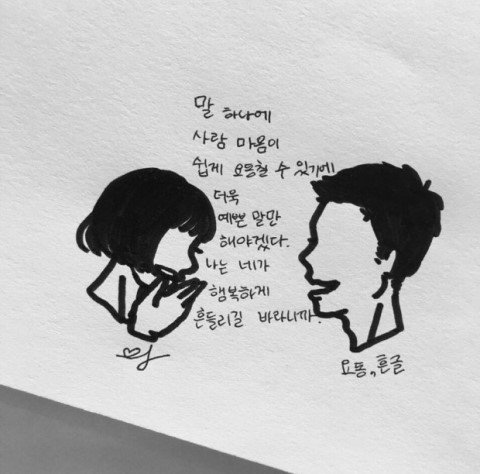 말 하나에
사람 마음이
쉽게 요동칠 수 있기에
더욱
예쁜 말만
해야겠다.
나는 네가
행복하게
흔들리길 바라니까.
요동, 흔글